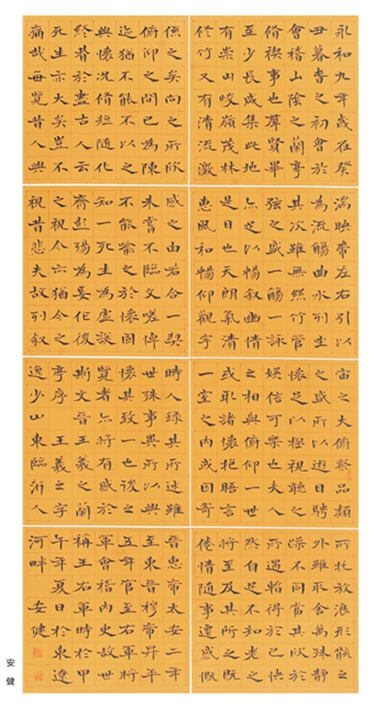 永和九年歲在癸
丑暮春之初會於
會稽山陰之蘭亭
脩禊事也群賢畢
至少長咸集此地
有崇山峻嶺茂林
脩竹又有清流激
湍映帶左右引以
為流觴曲水列坐
其次雖無絲竹管
弦之盛一觴一詠
亦足以暢叙幽情
是日也天朗氣清
惠風和暢仰觀宇
宙之大俯察品類
之盛所以遊目騁
懷足以極視聽之
娛信可樂也夫人
之相與俯仰一世
或取諸懷抱晤言
一室之內或因寄
所托放浪形骸之
外雖取舍萬殊靜
躁不同當其欣於
所遇暫得於己快
然自足不知老之
將至及其所之既
倦情隨事遷感慨
係之矣向之所欣
俯仰之間已為陳
迹猶不能不以之
興懷況脩短隨化
終期於盡古人云
死生亦大矣豈不
痛哉每覽昔人興
感之由若合一契
未嘗不臨文嗟悼
不能喻之於懷固
知一死生為虛誕
齊彭殤為妄作後
之視今亦猶今之
視昔悲夫故列叙
時人錄其所述雖
世殊事異所以興
懷其致一也後之
覽者亦將有感於
斯文晉王羲之蘭
亭序 王羲之字
逸少山東臨沂人
晉惠帝太安二年
至東晉穆帝昇平
五年官至右將
軍會稽內史故世
稱王右軍時於甲
午年夏日於東遼
河畔 安健
安健